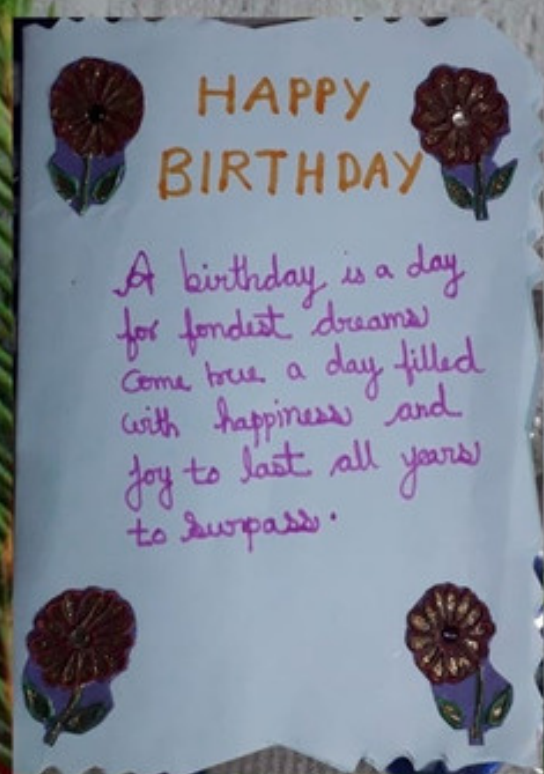 HAPPY
BIRTHDAY
A birthday is a day
for fondest dreams
come true a day filled
with happiness and
joy to last all years
to surpass.